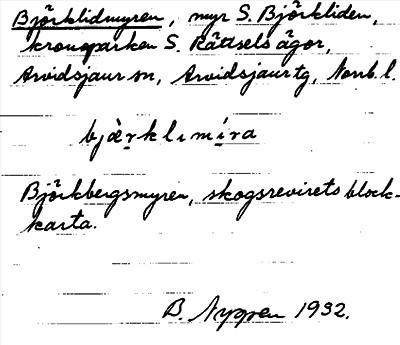 Björklidmyren, myr S. Björkliden,
kronoparken S. Rättsels ägor,
Arvidsjaur sn, Arvidsjaur tg, Norrb. l.
bjæ̀rklımíra
Björkbergsmyren, skogsrevirets block-
karta.
B. Nygren 1932.